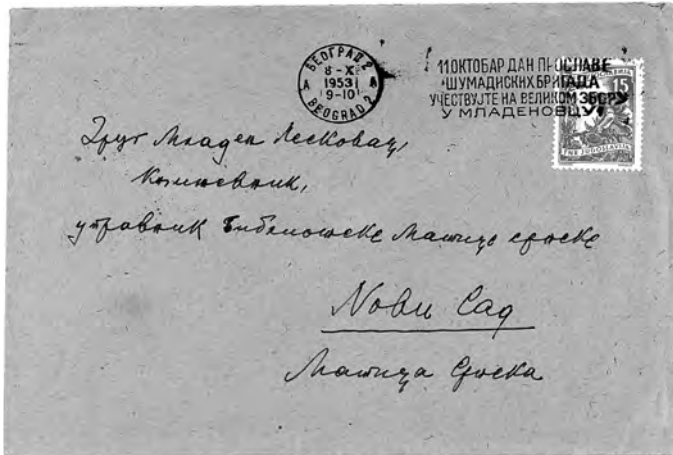 БЕОГРАД 2
8-X
1953
9-10
A A
BEOGRAD 2
11 ОКТОБАР ДАН ПРОСЛАВЕ
ШУМАДИСКИХ БРИГАДА
УЧЕСТВУЈТЕ НА ВЕЛИКОМ ЗБОРУ
У МЛАДЕНОВЦУ
15
FNR JUGOSLAVIJA
Друг Младен Лесковац,
Књижевник,
управник Библиотеке Матице српске
Нови Сад
Матица Српска